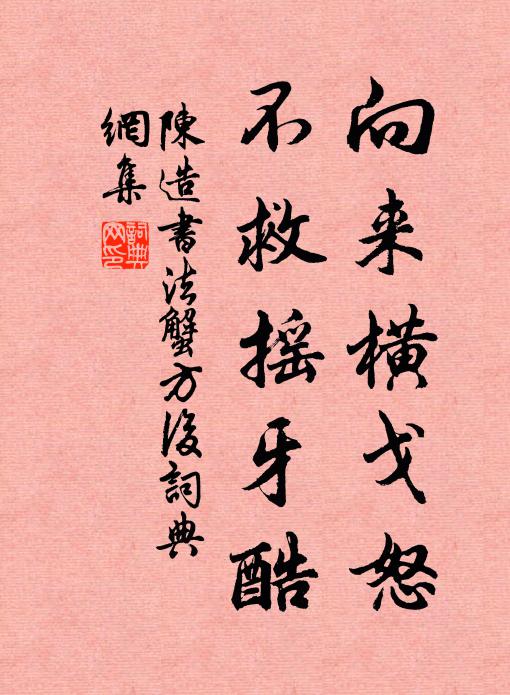 向来橫戈怒
不救摇牙酷
陳造書法蟹方後詞典
網集
詞典網印